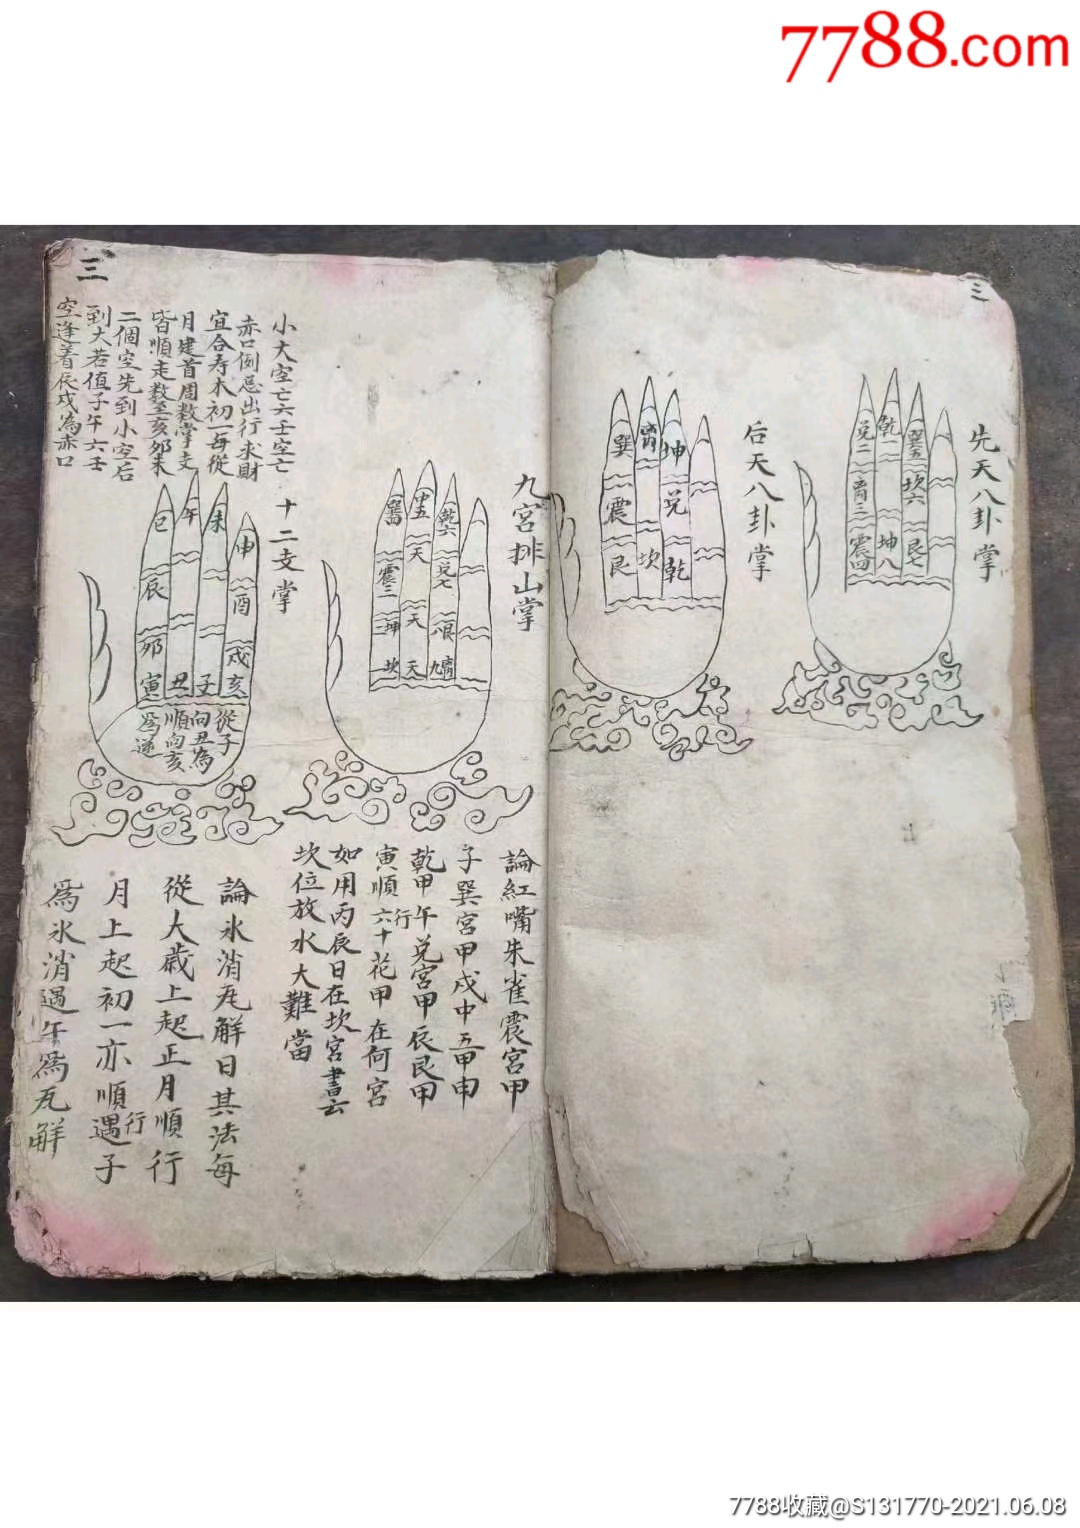 7788.com
三
先天八卦掌
兑二
三
震四
乾一
坤八
巽五
坎六
艮七
后天八卦掌
巽
震
艮
坎
坤
兑
乾
九宮排山掌
震三
坤二
中五
天
天
天
坎
乾六
兑七
艮八
九
論紅嘴朱雀震宮甲
子巽宮甲戌中五甲申
乾甲午兑宮甲辰艮甲
寅順行六十花甲在何宮
如用丙辰日在坎宮書云
坎位放水大難當
三
小大空亡六壬空亡
赤口例忌出行求財
宜合寿木初一每從
月建首周数掌支
皆順走数至亥卯未
二個空先到小空后
到大若值子午六壬
空逢着辰戌為赤口
十二支掌
巳
辰
卯
寅
午
丑
未
子
申
酉
戌
亥
從子
向丑為
順向亥
爲逆
論氷消瓦解日其法每
從大歲上起正月順行
月上起初一亦順行遇子
爲氷消遇午爲瓦解
7788收藏@S131770-2021.06.08